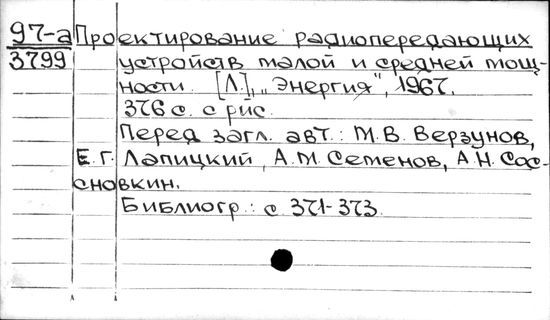 97-а Проектирование радиопередающих
3799 устройств малой и средней мощ-
ности. [Л.], „Энергия", 1967.
376 с. с рис.
Перед загл. авт.: М.В. Верзунов,
Е.Г. Лапицкий, А.М. Семенов, А.Н. Сос-
сновкин.
Библиогр.: с. 371-373.